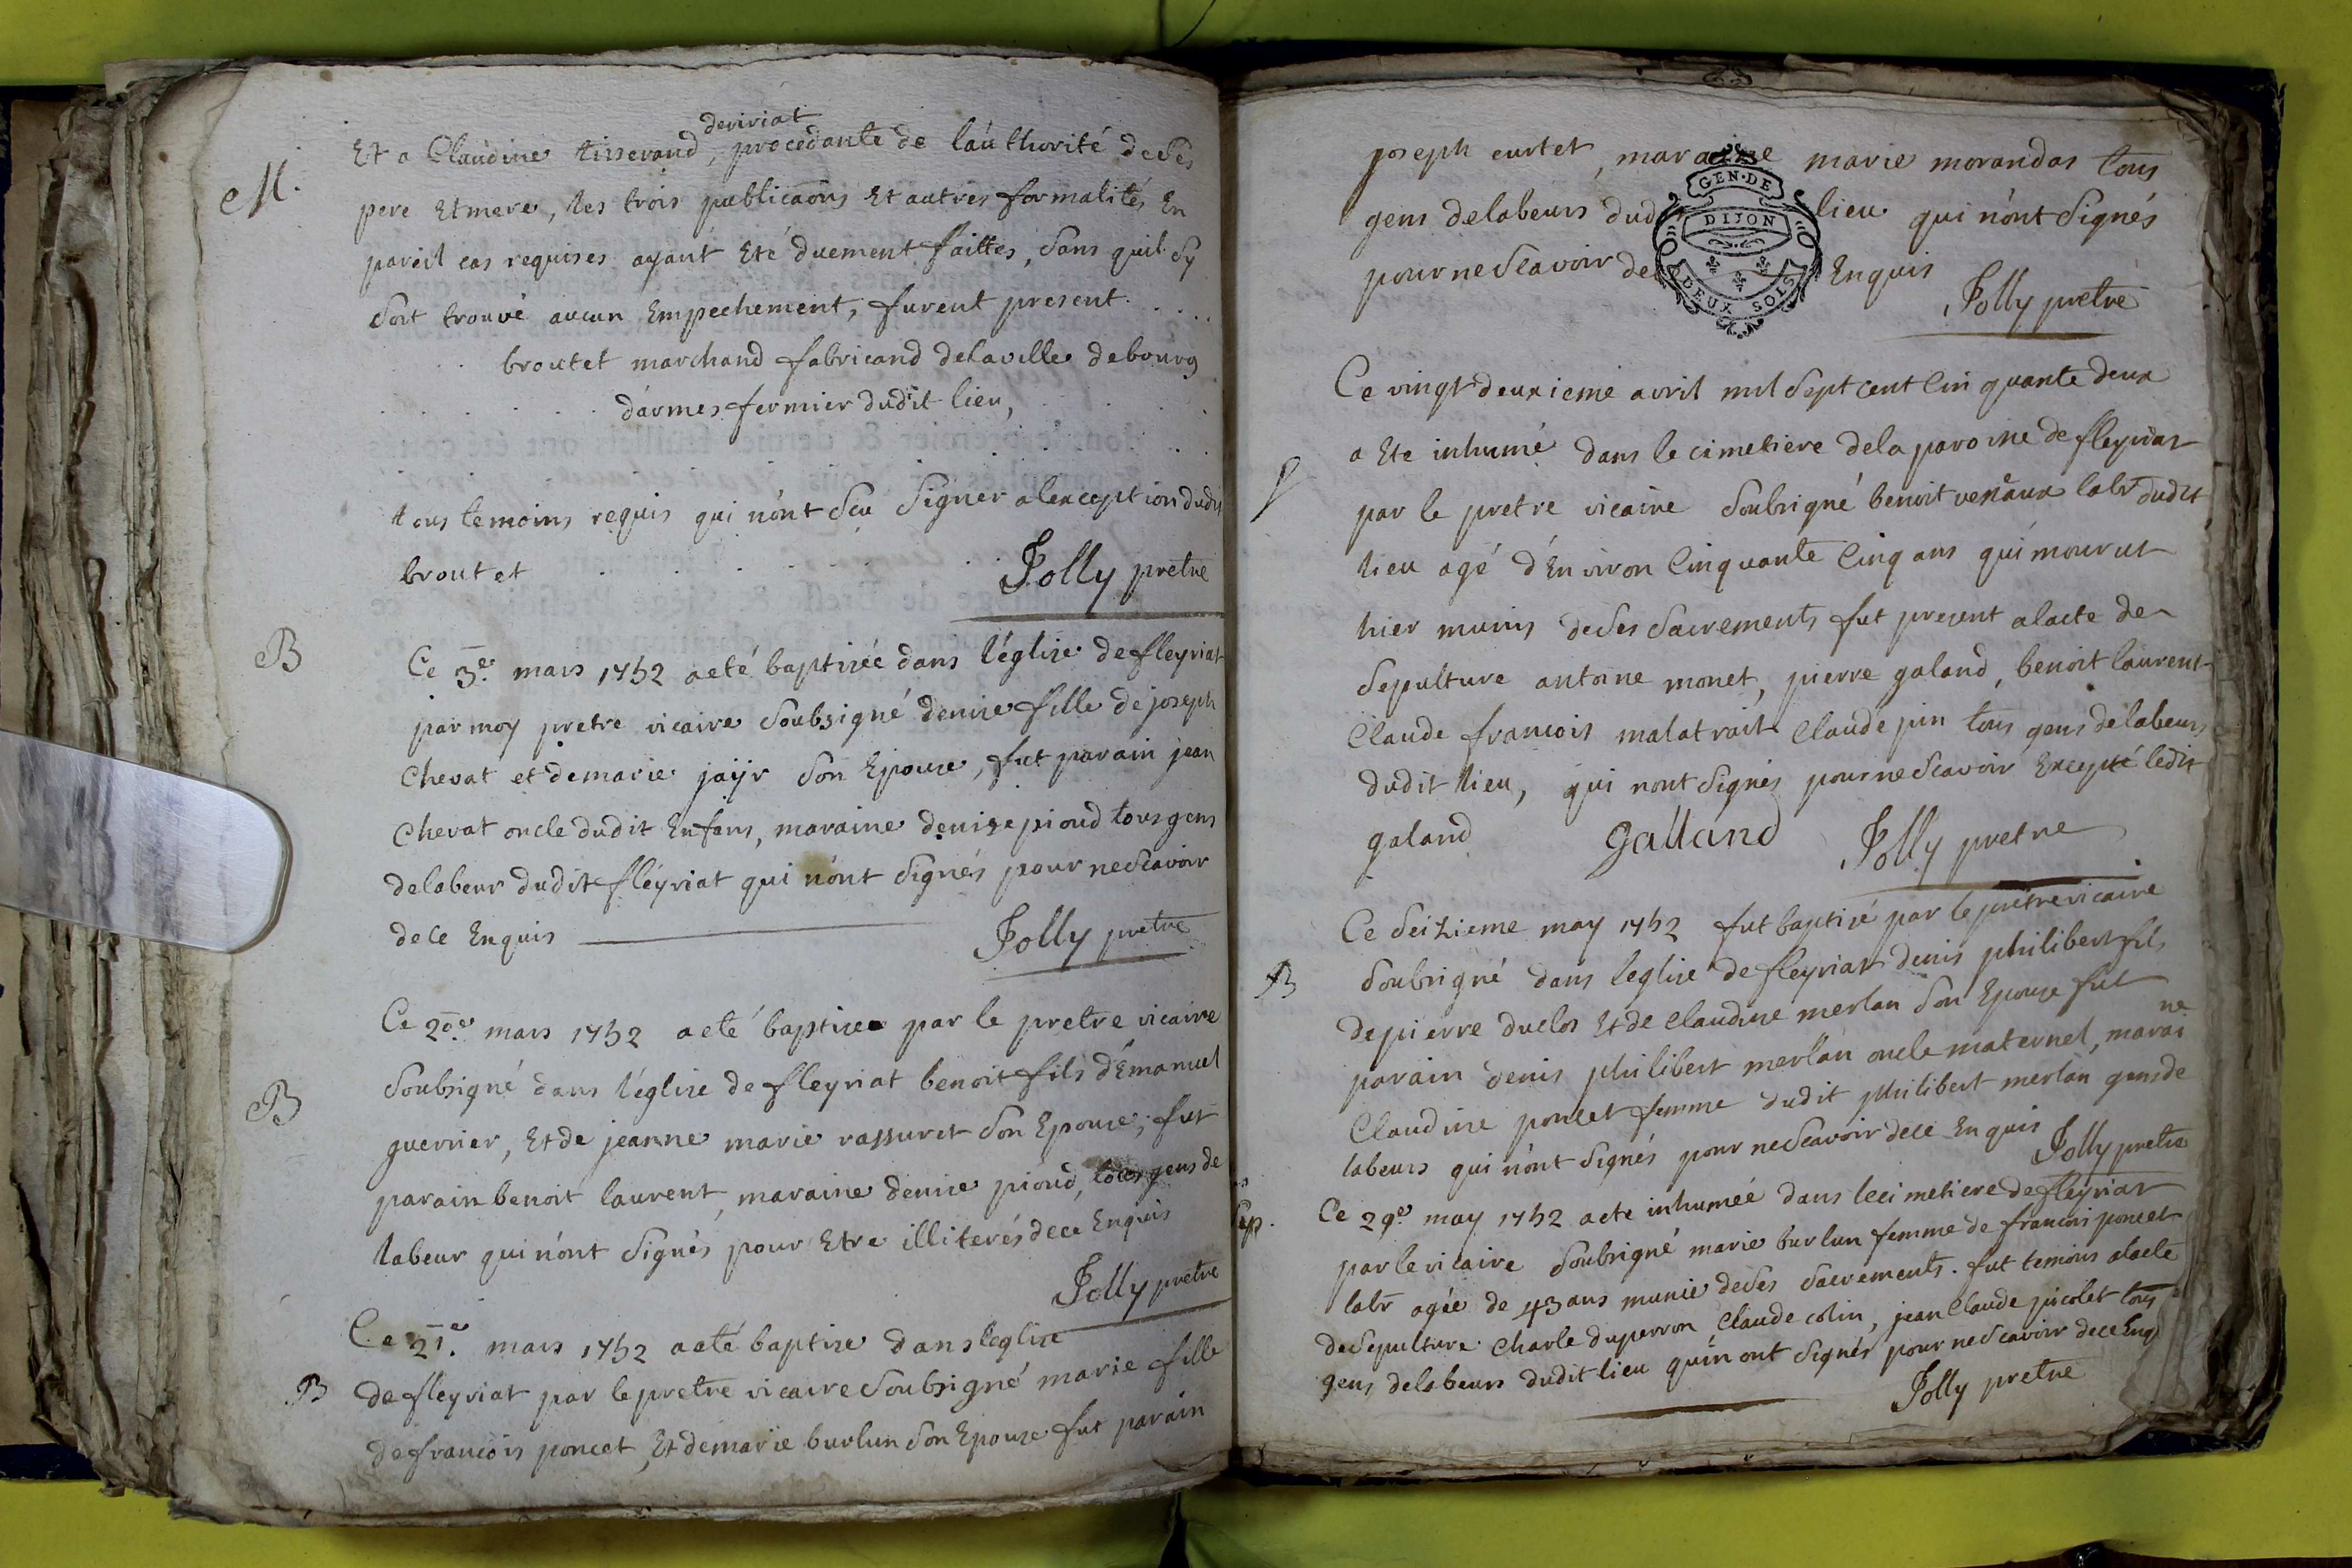 deviriat
M.
Et a Claudine tisserand, procedante de láuthorité de Ses
pere Et mere, les trois publicaõns Et autres formalités En
pareil cas requises ayant Eté duement faittes, Sans quil Sy
Soit trouvé aucun Empechement, furent present. . . .
. . broutet marchand fabricand de la ville de bourg
. . . . . dármes fermier dudit lieu, . . .
. . . . . . . . . .
tous temoins requis qui nónt Scu Signer a lexception dudit
broutet . . . . . . Jolly pretre
B
Ce 3.e mars 1752 a eté baptisée dans léglise de fleyriat
par moy pretre vicaire Soubsigné denise fille de joseph
Chevat et de marie jaÿr Son Epouse, fut parain jean
Chevat oncle dudit Enfans, maraine denise pioud tous gens
de labeur dudit fleyriat qui nónt Signés pour ne Scavoir
de ce Enquis Jolly pretre
Ce 20.e mars 1752 a eté baptisé par le pretre vicaire
B
Soubsigné dans léglise de fleyriat benoit fils dÉmanuel
guerrier, Et de jeanne marie rassuret Son Epouse, fut
parain benoit laurent, maraine denise pioud, tous gens de
labeur qui nónt Signés pour Etre illiterés de ce Enquis
Jolly pretre
Ce 21.e mars 1752 a eté baptise dans leglise
B
de fleyriat par le pretre vicaire Soubsigné marie fille
de francois poncet, Et de marie burlun Son Epouse fut parain
joseph curtet, maraine marie morandas tous
gens de labeurs dudit lieu qui nónt Signés
pour ne Scavoir de ce Enquis
Jolly pretre
GEN·DE
DIJON
DEUX SOLS
Ce vingt deuxieme avril mil Sept cent Cinquante deux
a Ete inhumé dans le cimetiere de la paroisse de fleyriat
par le pretre vicaire Soubsigné benoit labr dudit
lieu agé dÉnviron Cinquante Cinq ans qui mourut
hier munis de Ses Sacrements fut present a lacte de
Sepulture antoine monet, pierre galand, benoit laurent
Claude francois malatrait Claude pin tous gens de labeurs
dudit lieu, qui nont Signés pour ne Scavoir Excepté ledit
galand Galland Jolly pretre
Ce Seizieme may 1752 fut baptisé par le pretre vicaire
B
Soubsigné dans leglise de fleyriat denis philibert fils
de pierre duclos Et de Claudine merlan Son Epouse fut
parain denis philibert merlan oncle maternel, maraine
Claudine poncet femme dudit philibert merlan gens de
labeurs qui nónt Signés pour ne Scavoir de ce Enquis
Jolly pretre
Sep.
Ce 29.e may 1752 a eté inhumée dans le cimetiere de fleyriat
par le vicaire Soubsigné marie burlun femme de francois poncet
labr agée de 43 ans munie de Ses Sacrements. fut temoins a lacte
de Sepulture Charle duperron Claude colin, jean Claude picolet tous
gens de labeurs dudit lieu qui nont Signés pour ne Scavoir de ce Enq
Jolly pretre